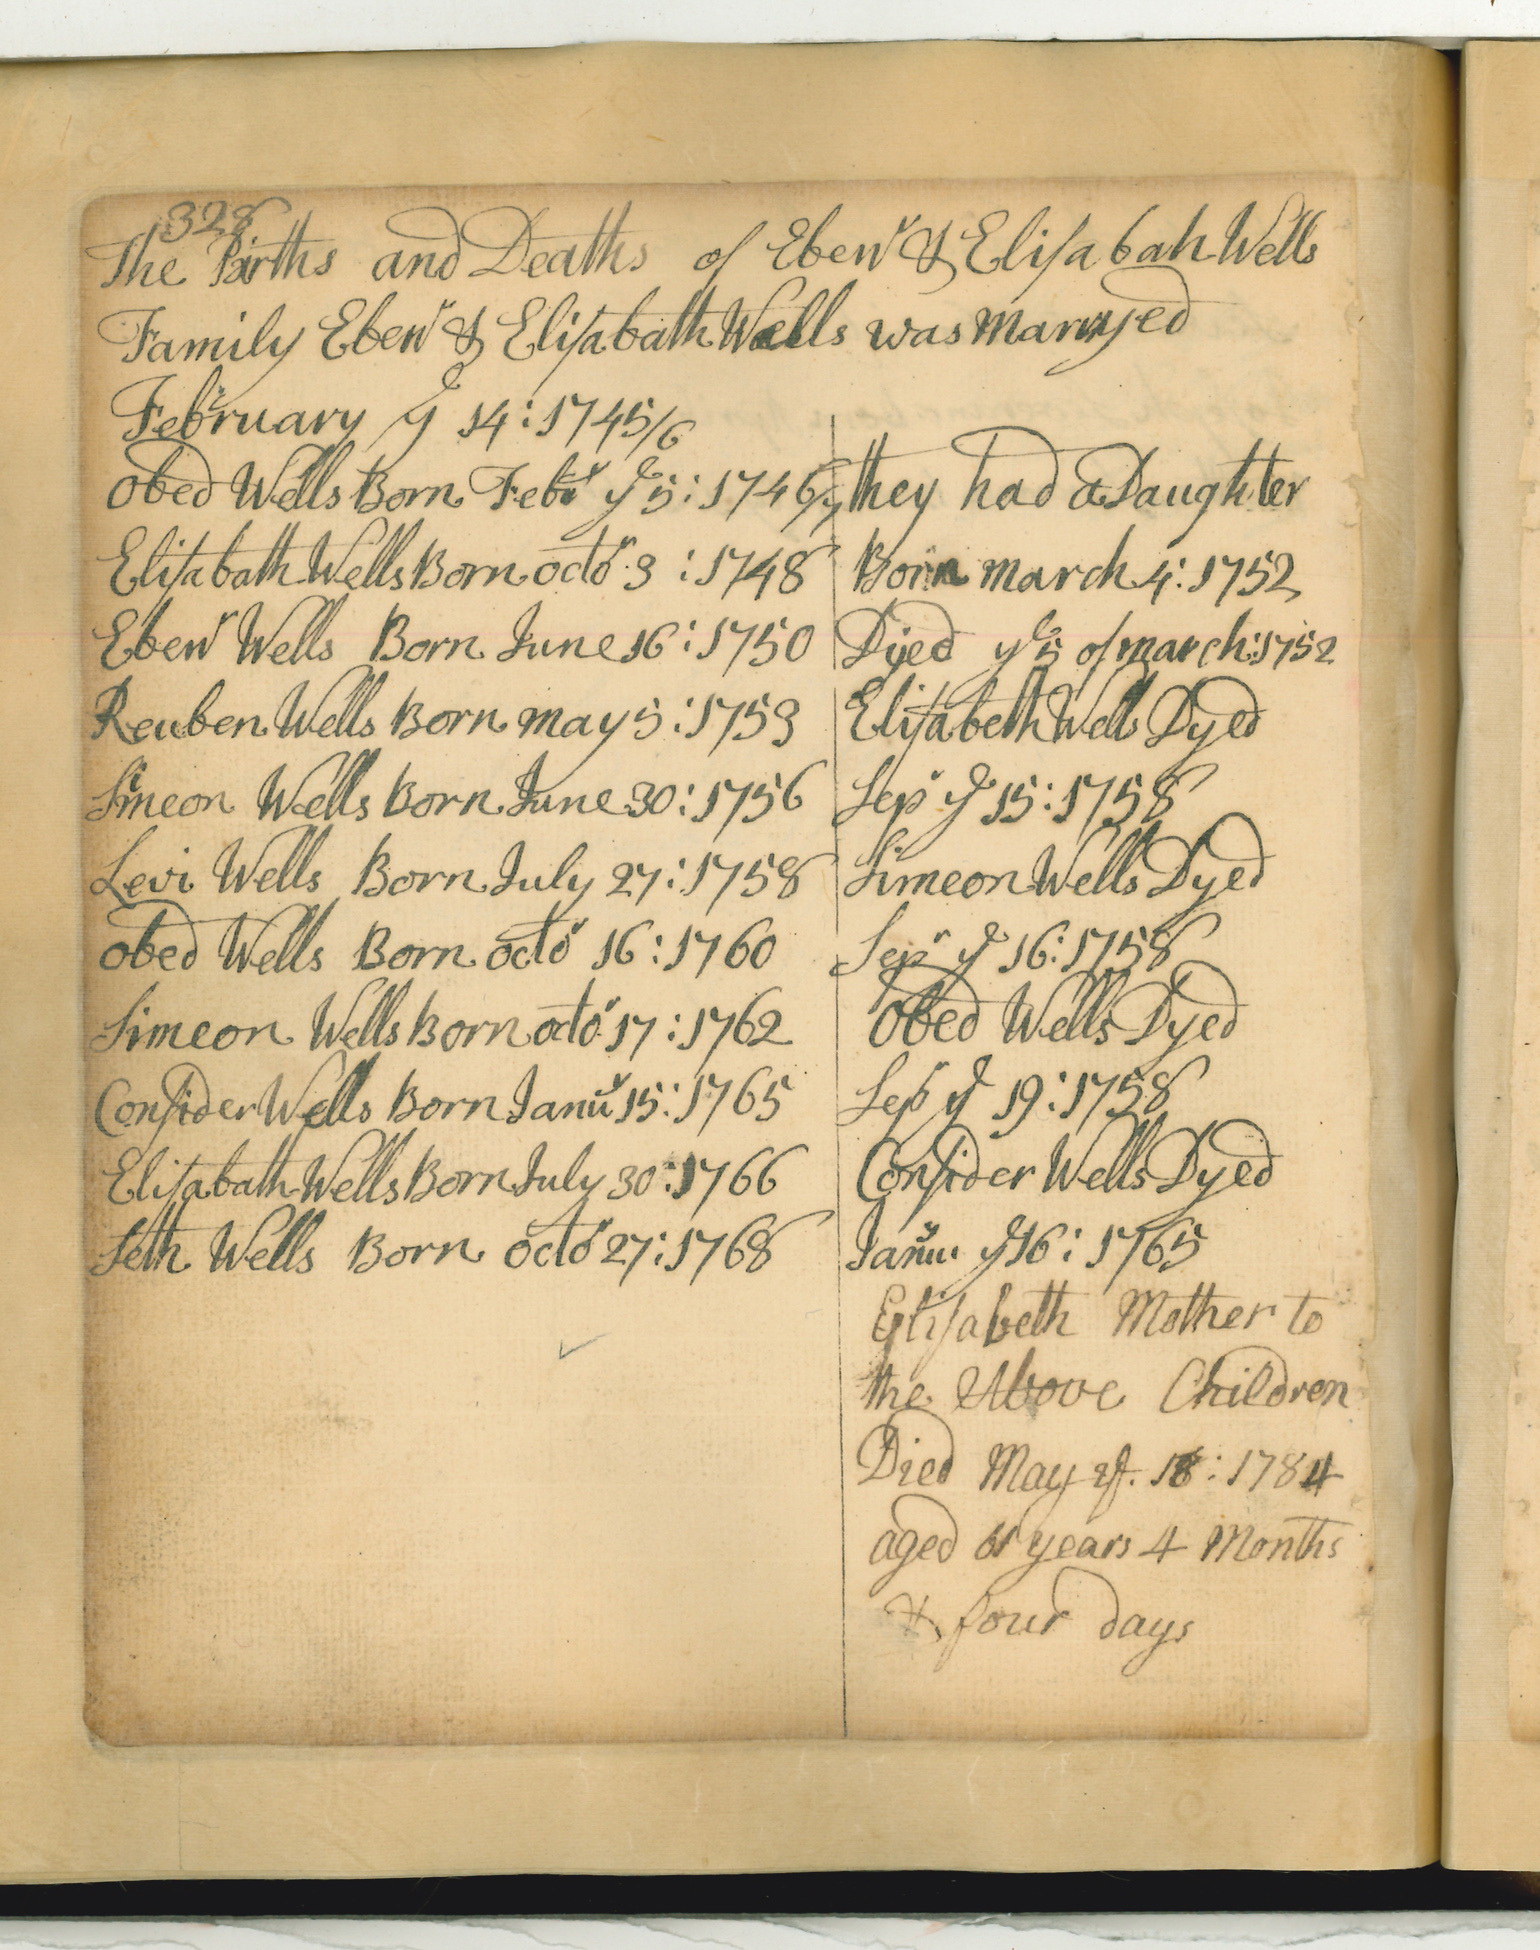 328
The Births and Deaths of Ebenr & Elisabah Wells
Family Ebenr & Elisabath Wells was Marryed
February ye 14 : 1745/6
Obed Wells Born Febr ye 5 : 1746/7
Elisabath Wells Born octor 3 : 1748
Ebenr Wells Born June 16 : 1750
Reuben Wells Born may 5 : 1753
Simeon Wells Born June 30 : 1756
Levi Wells Born July 27 : 1758
obed Wells Born octor 16 : 1760
Simeon Wells Born octor 17 : 1762
Consider Wells Born Janur 15 : 1765
Elisabath Wells Born July 30 : 1766
Seth Wells Born octor 27 : 1768
they had a Daughter
Born march 4 : 1752
Dyed ye 5 of march : 1752
Elisabeth Wells Dyed
Sepr ye 15 : 1758
Simeon Wells Dyed
Sepr ye 16 : 1758
Obed Wells Dyed
Sepr ye 19 : 1758
Consider Wells Dyed
Janur ye 16 : 1765
Elisabeth Mother to
the Above Children
Died May ye. 18 : 1784
aged 61 years 4 Months
& four days